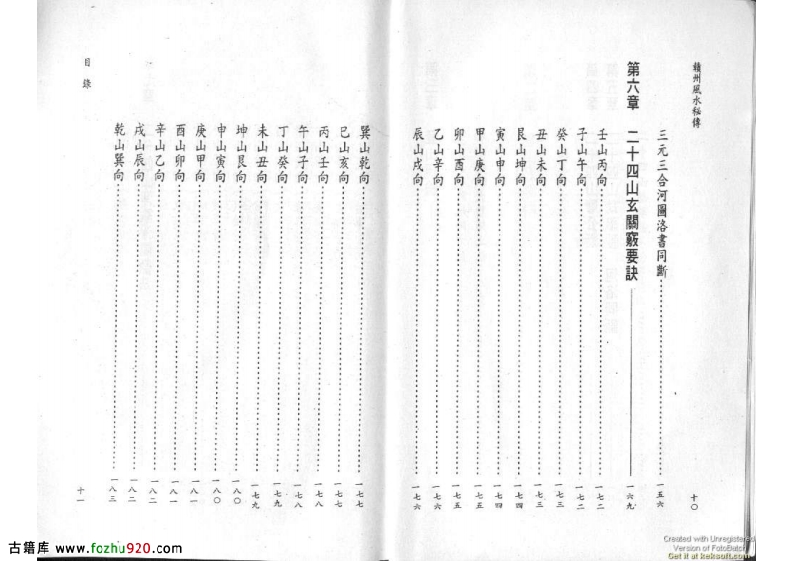 贛州風水秘傳
三元三合河圖洛書同斷 一五六
第六章 二十四山玄關竅要訣 一六九
壬山丙向 一七二
子山午向 一七二
癸山丁向 一七三
丑山未向 一七三
艮山坤向 一七四
寅山申向 一七四
甲山庚向 一七五
卯山酉向 一七五
乙山辛向 一七六
辰山戌向 一七六
十〇
巽山乾向 一七七
巳山亥向 一七七
丙山壬向 一七八
午山子向 一七八
丁山癸向 一七九
未山丑向 一七九
坤山艮向 一八〇
申山寅向 一八〇
庚山甲向 一八一
酉山卯向 一八一
辛山乙向 一八二
戌山辰向 一八二
乾山巽向 一八三
目錄
十一
古籍库 www.fozhu920.com
Created with Unregistered
Version of FotoBatch
Get it at keksoft.com